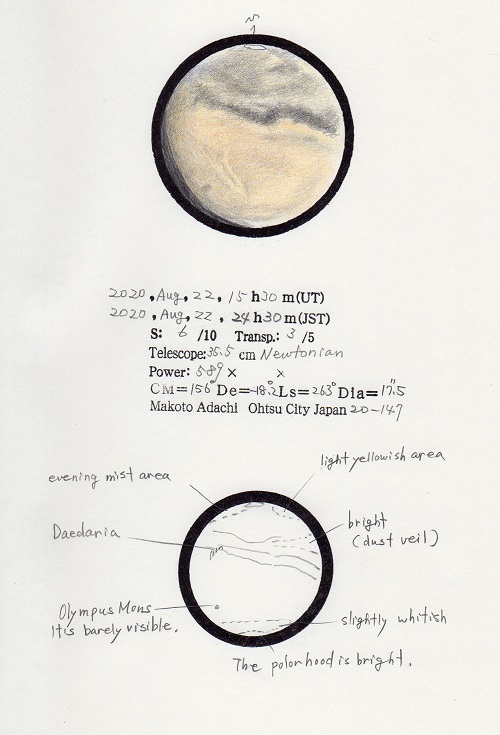 S
2020, Aug, 22, 15h30m(UT)
2020, Aug, 22, 24h30m(JST)
S: 6 /10 Transp.: 3 /5
Telescope: 35.5 cm Newtonian
Power: 589 × ×
CM=156° De=-18.2 Ls=263° Dia=17.5"
Makoto Adachi Ohtsu City Japan 20-147
light yellowish area
evening mist area
bright
(dust veil)
Daedaria
Olympus Mons
It is barely visible.
slightly whitish
The polor hood is bright.